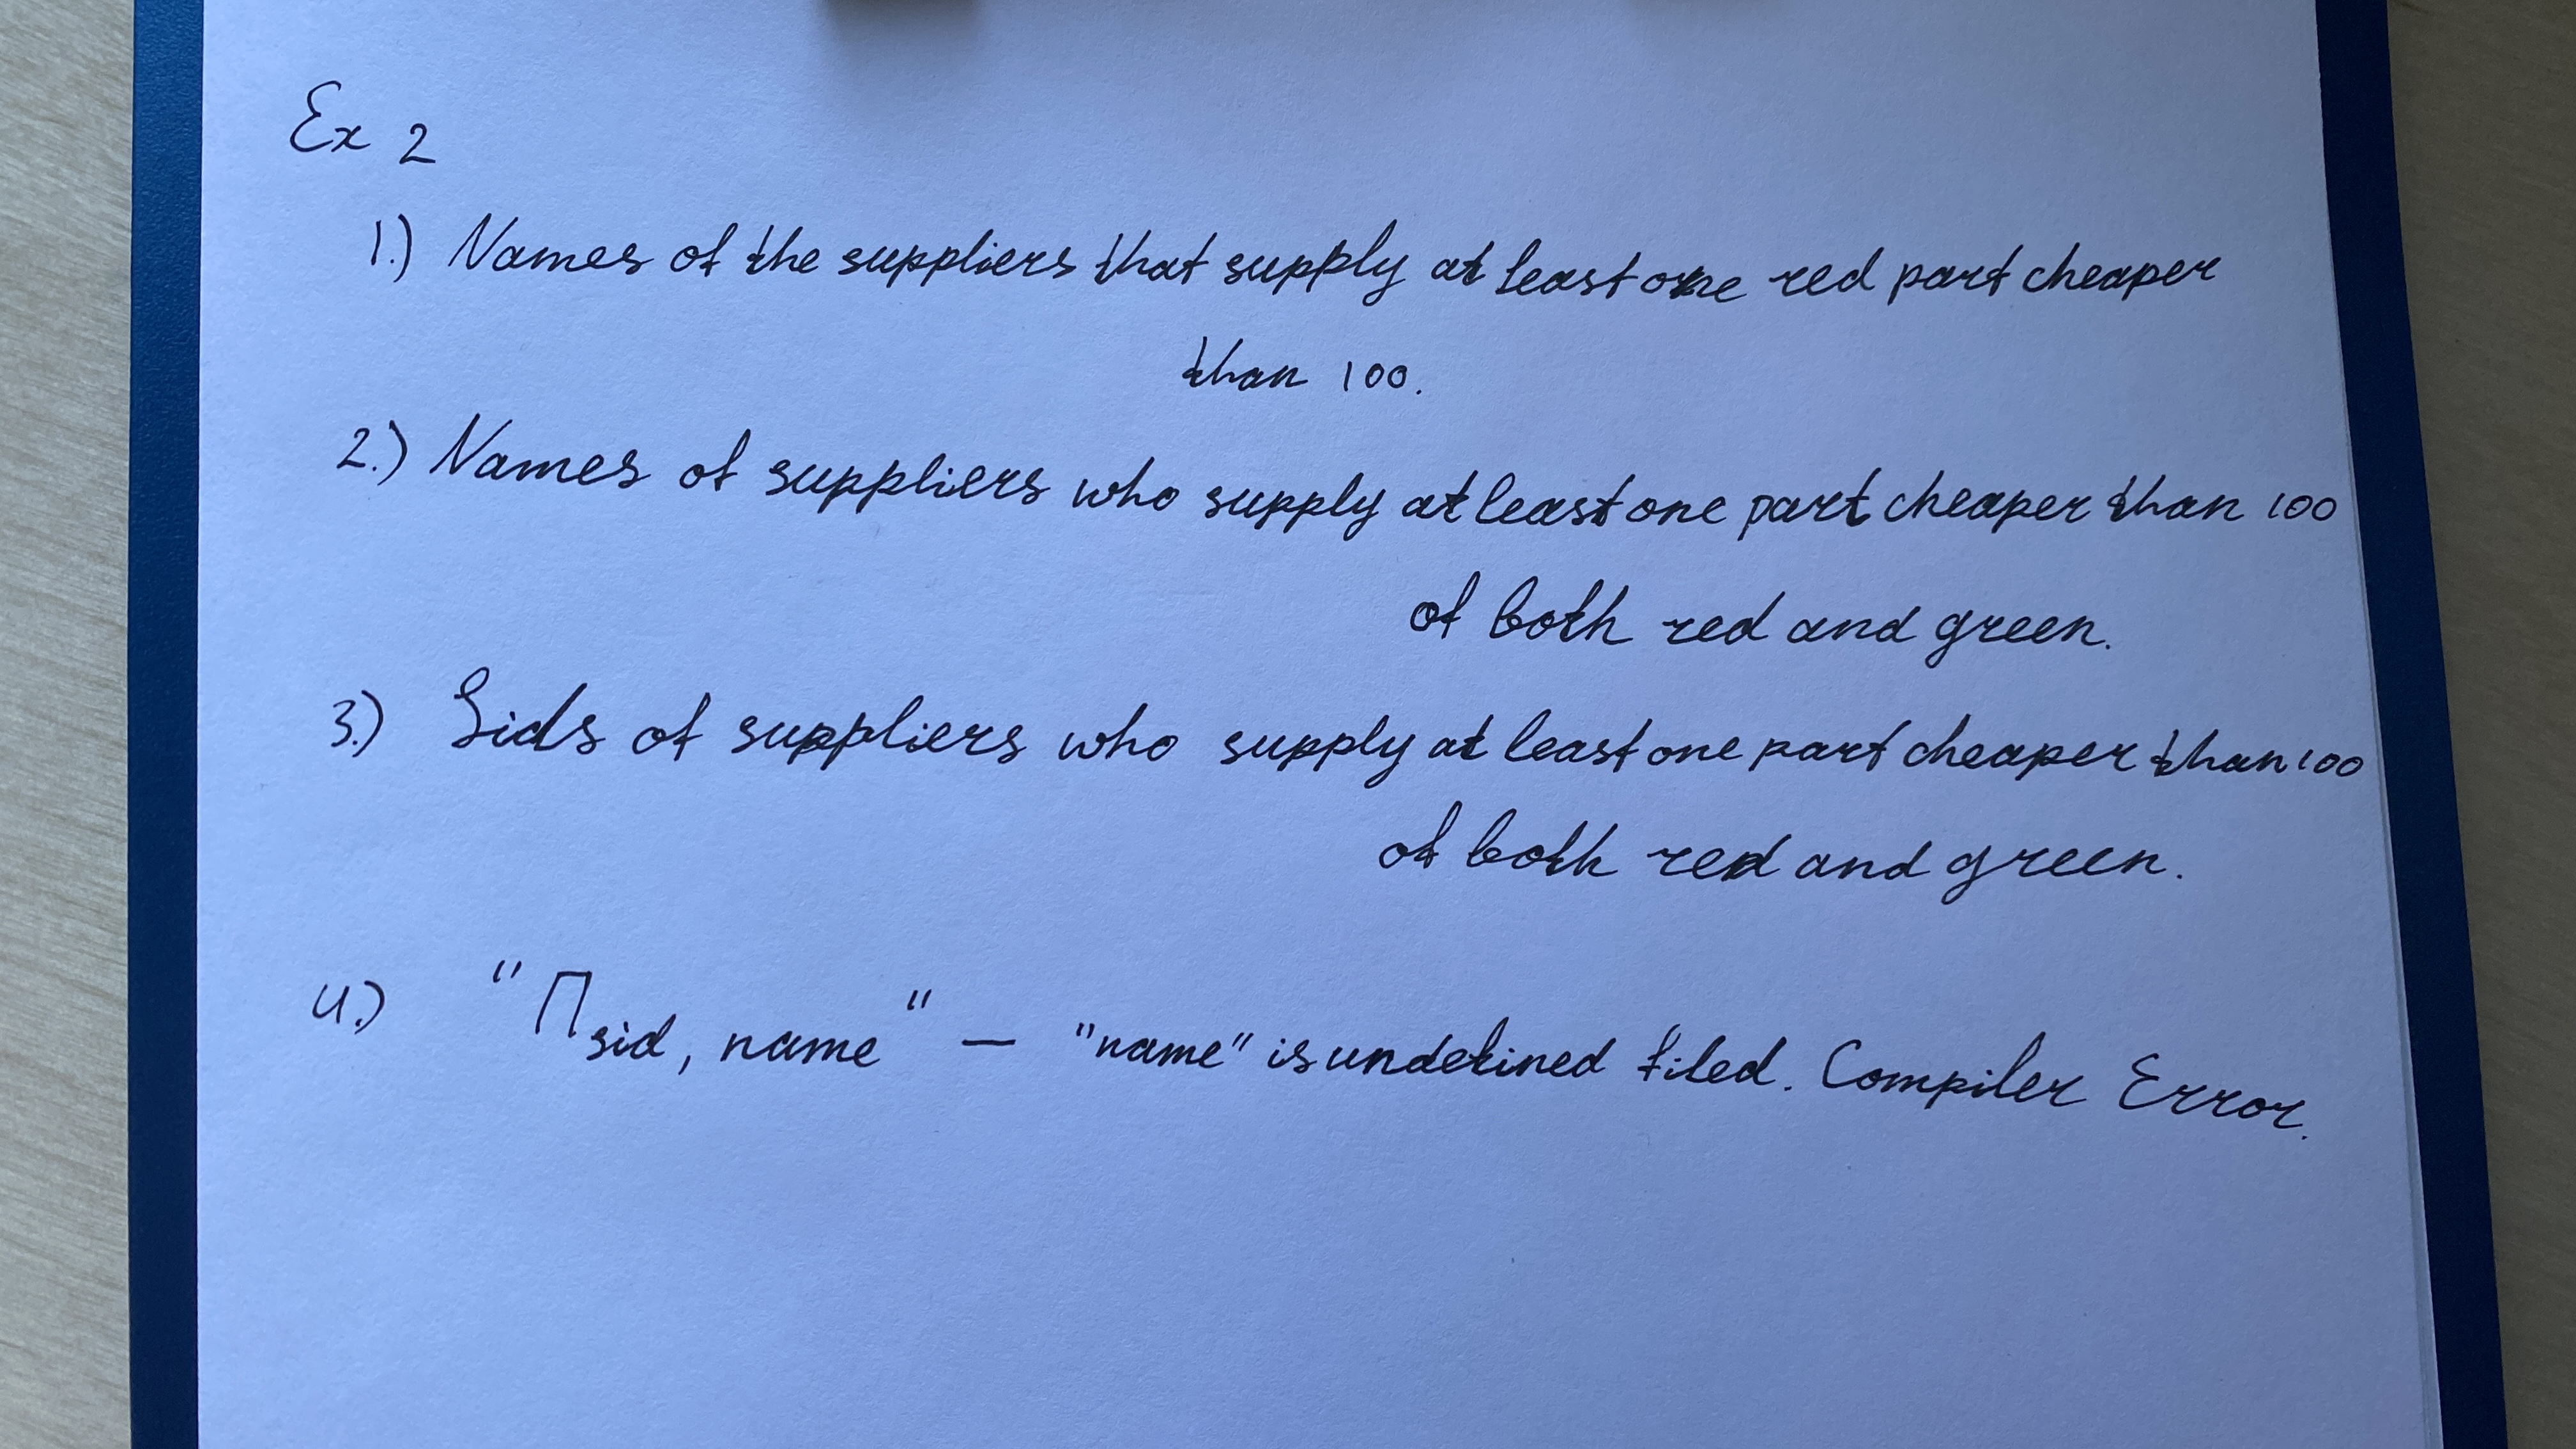 Ex 2
1.) Names of the suppliers that supply at least one red part cheaper
than 100.
2.) Names of suppliers who supply at least one part cheaper than 100
of both red and green.
3.) Sids of suppliers who supply at least one part cheaper than 100
of both red and green.
4.) "Π sid, name" — "name" is undefined filed. Compiler Error.